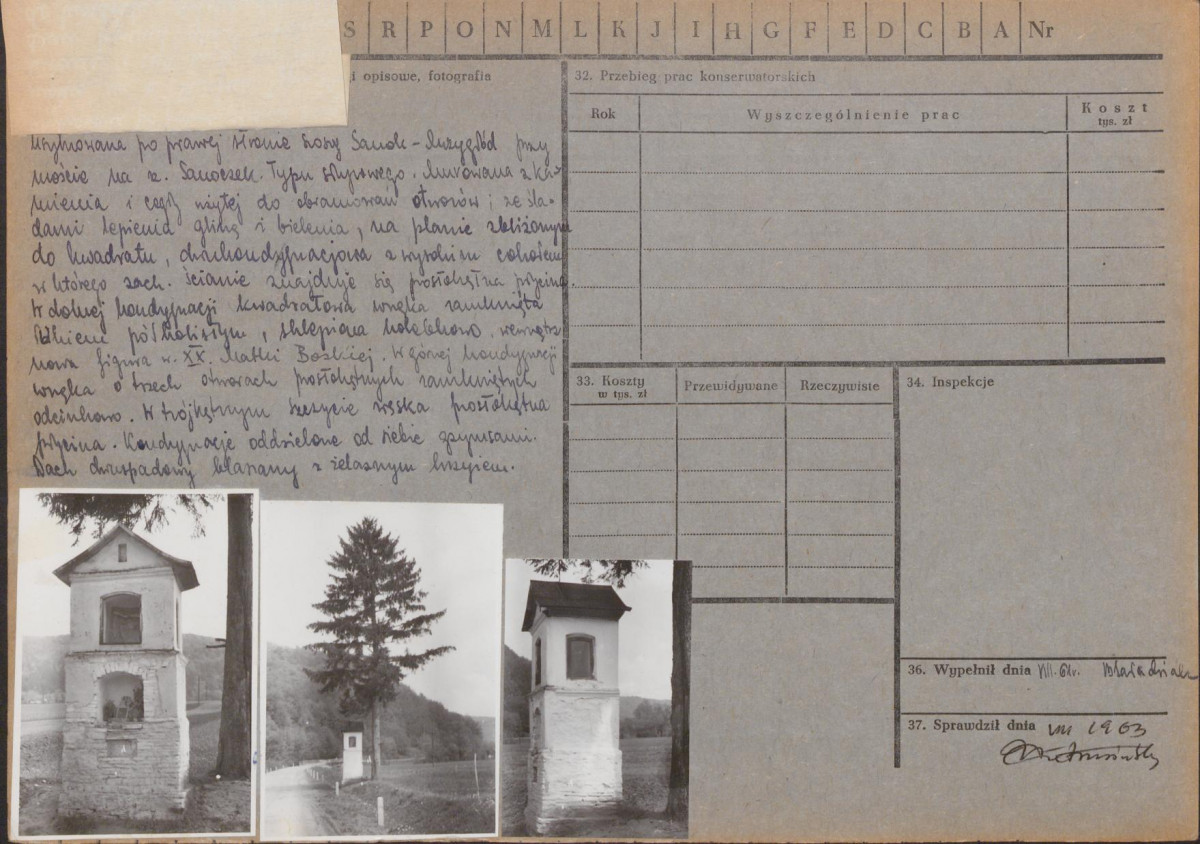 S R P O N M L K J I H G F E D C B A Nr
i opisowe, fotografia
Usytuowana po prawej stronie szosy Sanok – Mrzygłód przy
moście na z. Sanoczek. Typu słupowego. Murowana z ka-
mienia i cegły użytej do obramowań otworów; ze śla-
dami lepienia gliną i bielenia, na planie zbliżonym
do kwadratu, dwukondygnacjowa z wysokim cokołem
w którego zach. ścianie znajduje się prostokątna płycina.
W dolnej kondygnacji kwadratowa wnęka zamknięta
łukiem półkolistym, sklepiona kolebkowo, wewnątrz
nowa figura w. XX. Matki Boskiej. W górnej kondygnacji
wnęka o trzech otworach prostokątnych zamkniętych
odcinkowo. W trójkątnym szczycie wąska prostokątna
płycina. Kondygnacje oddzielone od siebie gzymsami.
Dach dwuspadowy blaszany z żelaznym krzyżem.
32. Przebieg prac konserwatorskich
Rok
Wyszczególnienie prac
Koszt
tys. zł
33. Koszty
w tys. zł
Przewidywane
Rzeczywiste
34. Inspekcje
36. Wypełnił dnia
37. Sprawdził dnia VIII 1963